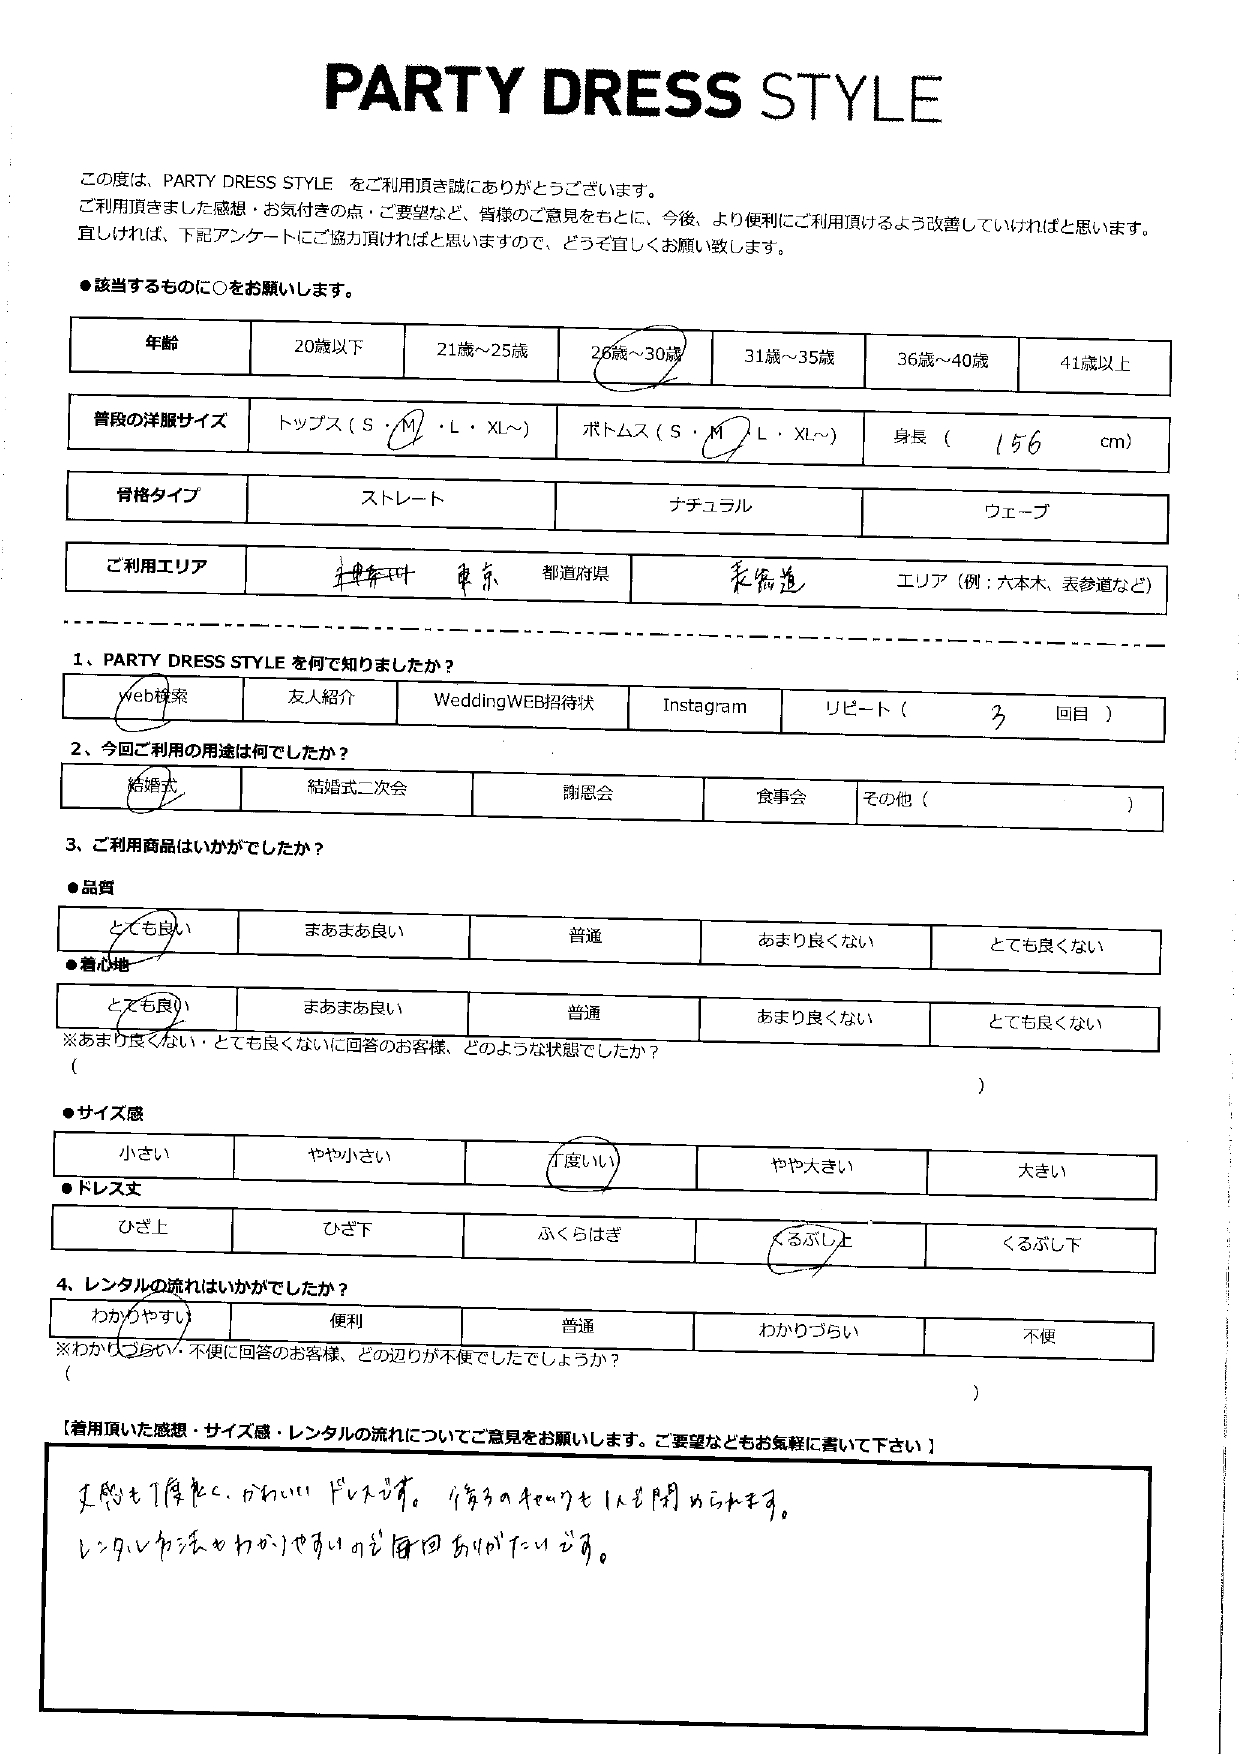 PARTY DRESS STYLE
この度は、PARTY DRESS STYLE をご利用頂き誠にありがとうございます。
ご利用頂きました感想・お気付きの点・ご要望など、皆様のご意見をもとに、今後、より便利にご利用頂けるよう改善していければと思います。
宜しければ、下記アンケートにご協力頂ければと思いますので、どうぞ宜しくお願い致します。
●該当するものに○をお願いします。
年齢 20歳以下 21歳～25歳 26歳～30歳 31歳～35歳 36歳～40歳 41歳以上
普段の洋服サイズ トップス ( S ・ M ・ L ・ XL～) ボトムス ( S ・ M ・ L ・ XL～) 身長 ( 156 cm)
骨格タイプ ストレート ナチュラル ウェーブ
ご利用エリア 神奈川 東京 都道府県 表参道 エリア（例：六本木、表参道など）
1、PARTY DRESS STYLE を何で知りましたか？
web検索 友人紹介 WeddingWEB招待状 Instagram リピート（ 3 回目 ）
2、今回ご利用の用途は何でしたか？
結婚式 結婚式二次会 謝恩会 食事会 その他（ ）
3、ご利用商品はいかがでしたか？
●品質
とても良い まあまあ良い 普通 あまり良くない とても良くない
●着心地
とても良い まあまあ良い 普通 あまり良くない とても良くない
※あまり良くない・とても良くないに回答のお客様、どのような状態でしたか？
( )
●サイズ感
小さい やや小さい 丁度いい やや大きい 大きい
●ドレス丈
ひざ上 ひざ下 ふくらはぎ くるぶし上 くるぶし下
4、レンタルの流れはいかがでしたか？
わかりやすい 便利 普通 わかりづらい 不便
※わかりづらい・不便に回答のお客様、どの辺りが不便でしたでしょうか？
( )
【着用頂いた感想・サイズ感・レンタルの流れについてご意見をお願いします。ご要望などもお気軽に書いて下さい】
丈感も丁度良く、かわいいドレスです。後ろのチャックも1人で閉められます。
レンタル方法もわかりやすいので毎回ありがたいです。